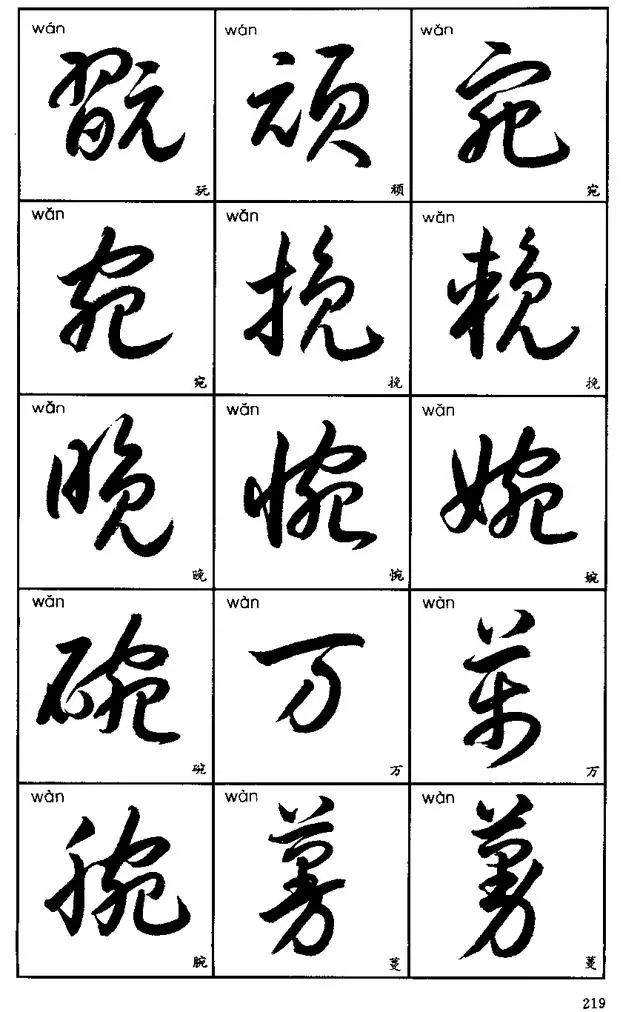 wán wán wǎn
翫 顽 宛
玩 顽 宛
wǎn wǎn wǎn
宛 挽 輓
宛 挽 挽
wǎn wǎn wǎn
晚 惋 婉
晚 惋 婉
wǎn wàn wàn
碗 万 萬
碗 万 万
wàn wàn wàn
腕 蔓 蔓
腕 蔓 蔓
219